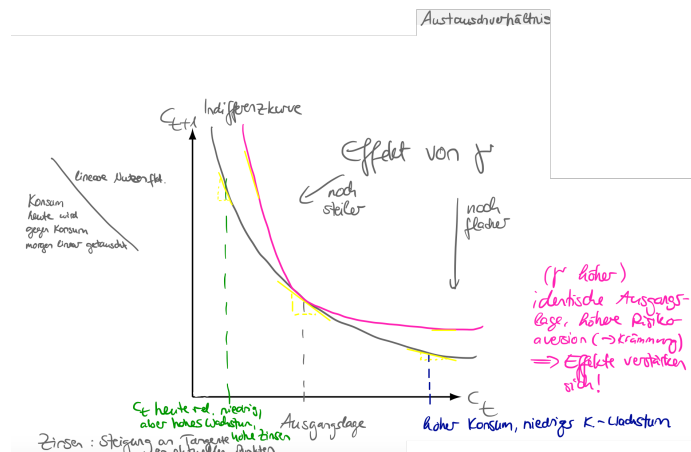 Austauschverhältnis
Indifferenzkurve
C_t+1
Effekt von γ
noch
steiler
noch
flacher
lineare Nutzenfkt.
Konsum
heute wird
gegen Konsum
morgen linear getauscht
(γ höher)
identische Ausgangs-
lage, höhere Risiko-
aversion (→Krümmung)
⇒ Effekte verstärken
sich!
C_t
C_t heute rel. niedrig,
aber hohes Wachstum,
hohe Zinsen
Ausgangslage
hoher Konsum, niedriges K.-Wachstum
Zinsen : Steigung an Tangente
Punkten